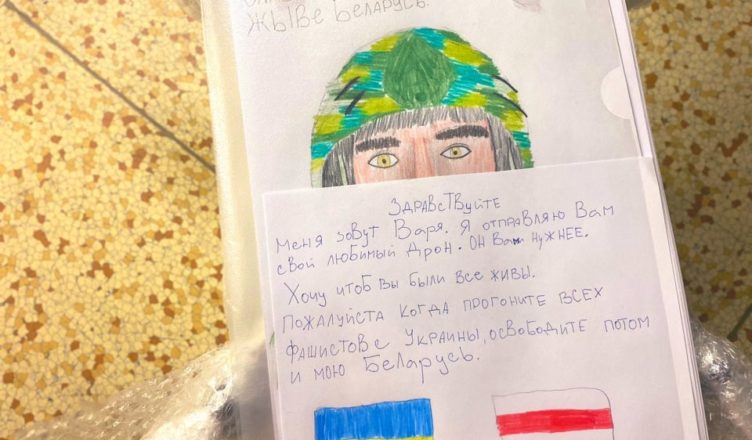 ЖЫВЕ БЕЛАРУСЬ.
ЗДРАВСТВУЙТЕ
Меня зовут Варя. Я отправляю Вам
свой любимый дрон. ОН Вам нужнее.
Хочу чтоб вы были все живы.
Пожалуйста когда прогоните всех
фашистов с Украины, освободите потом
и мою Беларусь.